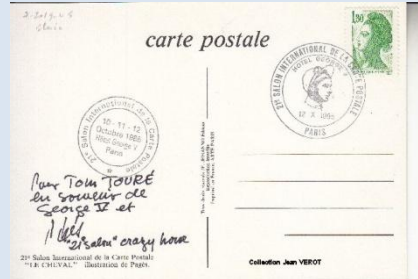 carte postale
1,80
21e SALON INTERNATIONAL DE LA CARTE POSTALE
HOTEL GEORGE V
12 X 1985
PARIS
21e Salon International de la Carte Postale
10-11-12
Octobre 1985
Hôtel George V
Paris
Pour Tom TOURÉ
en souvenir de
George V et
"21e salon" crazy horse
21e Salon International de la Carte Postale
"LE CHEVAL" illustration de Pagès.
Collection Jean VEROT